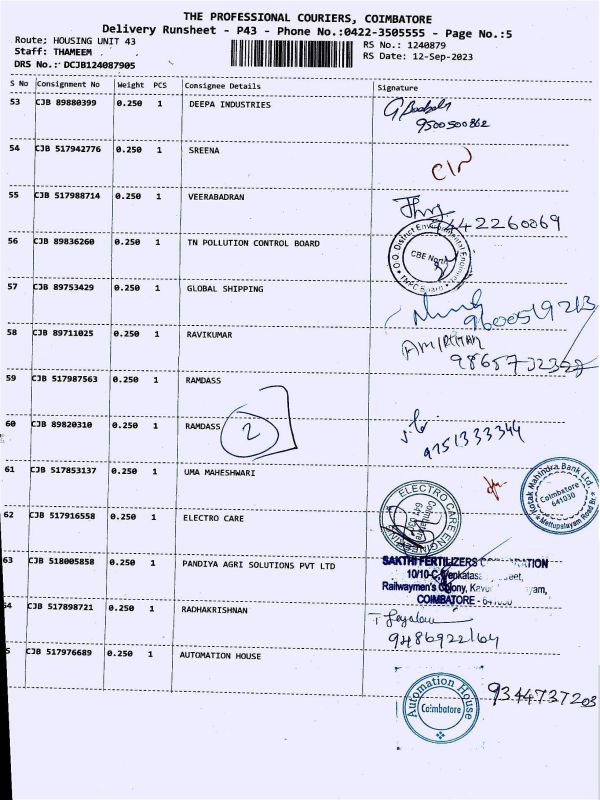 THE PROFESSIONAL COURIERS, COIMBATORE
Delivery Runsheet - P43 - Phone No.:0422-3505555 - Page No.:5
Route: HOUSING UNIT 43
RS No.: 1240879
Staff: THAMEEM
RS Date: 12-Sep-2023
DRS No.: DCJB124087905
S No Consignment No Weight PCS Consignee Details Signature
53 CJB 89880399 0.250 1 DEEPA INDUSTRIES
9500500862
54 CJB 517942776 0.250 1 SREENA
55 CJB 517988714 0.250 1 VEERABADRAN
9442260069
56 CJB 89836260 0.250 1 TN POLLUTION CONTROL BOARD
O/O. District Environmental Engineer
CBE North
57 CJB 89753429 0.250 1 GLOBAL SHIPPING
9600519213
58 CJB 89711025 0.250 1 RAVIKUMAR
59 CJB 517987563 0.250 1 RAMDASS
60 CJB 89820310 0.250 1 RAMDASS 2
9751333344
61 CJB 517853137 0.250 1 UMA MAHESHWARI
Kotak Mahindra Bank Ltd.
Coimbatore
641030
Mettupalayam Road
62 CJB 517916558 0.250 1 ELECTRO CARE
ELECTRO CARE ENGINEERS
Coimbatore
63 CJB 518005858 1 PANDIYA AGRI SOLUTIONS PVT LTD
SAKTHI FERTILIZERS CORPORATION
10/10-C,
Railwaymen's Colony,
COIMBATORE -
64 CJB 517898721 0.250 1 RADHAKRISHNAN
9486922164
5 CJB 517976689 0.250 1 AUTOMATION HOUSE
Automation House
Coimbatore
9344737203